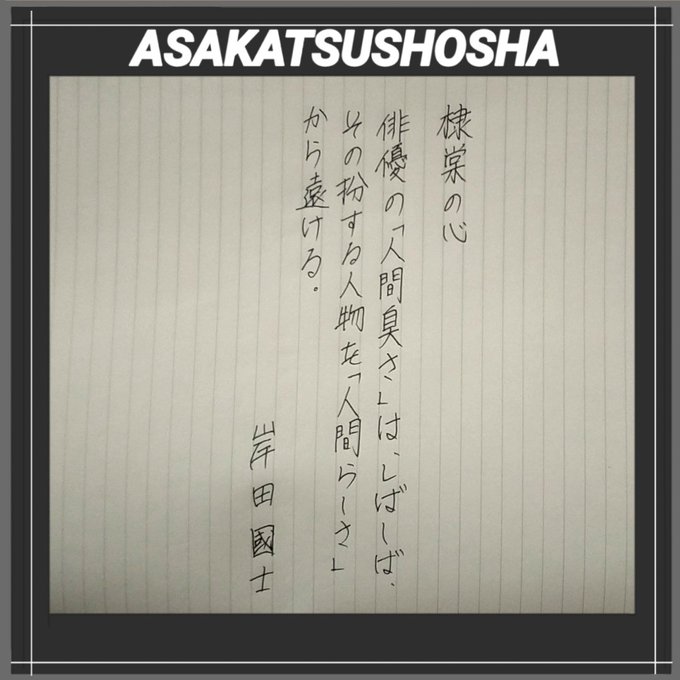 ASAKATSUSHOSHA
棣棠の心
俳優の「人間臭さ」は、しばしば、
その扮する人物を「人間らしさ」
から遠ける。
岸田國士